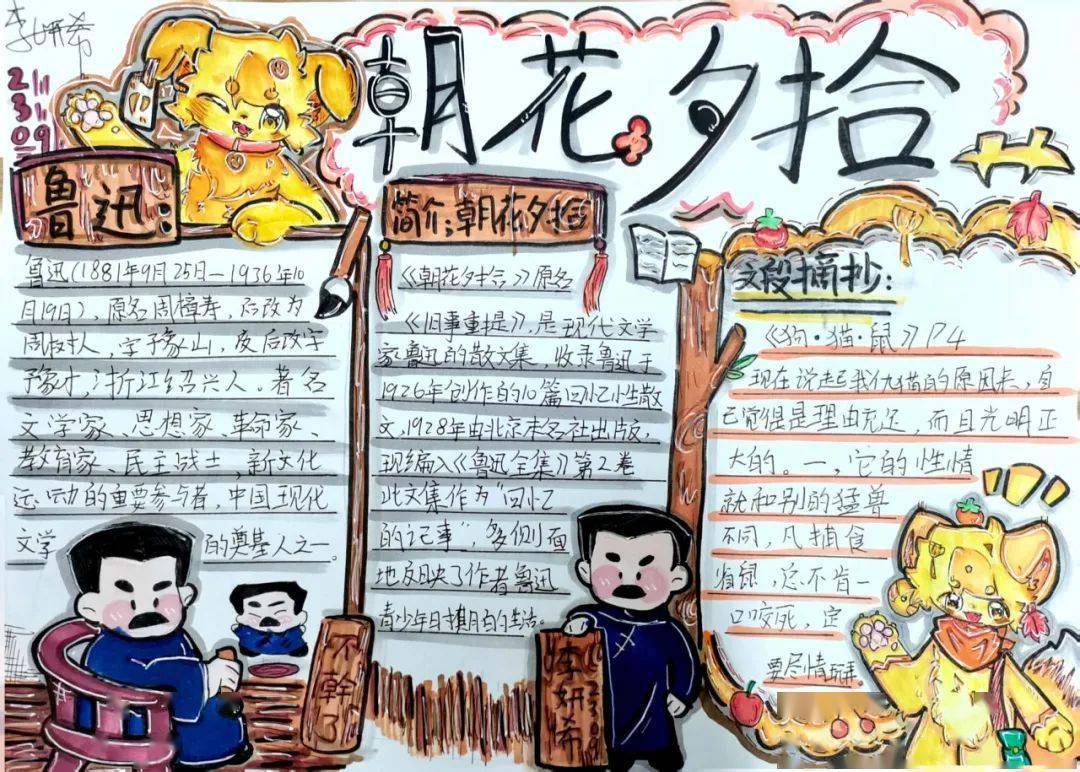 李妍希
2113109
朝花夕拾
鲁迅:
鲁迅(1881年9月25日—1936年10
月19日),原名周樟寿,后改为
周树人,字豫山,后改字
豫才,浙江绍兴人。著名
文学家、思想家、革命家、
教育家、民主战士,新文化
运动的重要参与者,中国现代
文学的奠基人之一。
简介:朝花夕拾
《朝花夕拾》原名
《旧事重提》,是现代文学
家鲁迅的散文集,收录鲁迅于
1926年创作的10篇回忆性散
文,1928年由北京未名社出版,
现编入《鲁迅全集》第2卷
此文集作为“回忆
的记事”,多侧面
地反映了作者鲁迅
青少年时期的生活。
文段摘抄:
《狗·猫·鼠》P4
现在说起我仇猫的原因来,自
己觉得是理由充足,而且光明正
大的。一,它的性情
就和别的猛兽
不同,凡捕食
雀鼠,总不肯一
口咬死,定
要尽情玩弄
不幹了
李妍希